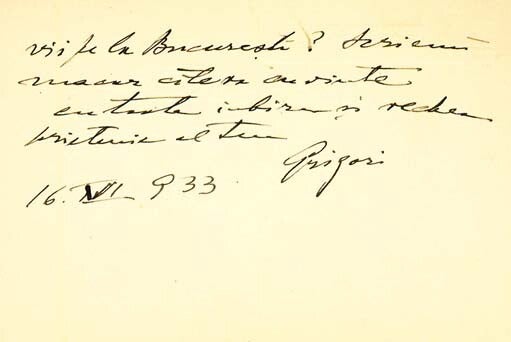 vii pe la București? Scrie-mi
macar câteva cuvinte
cu toata iubirea și vechea
prietenie al tau
Grigori
16. XII 933